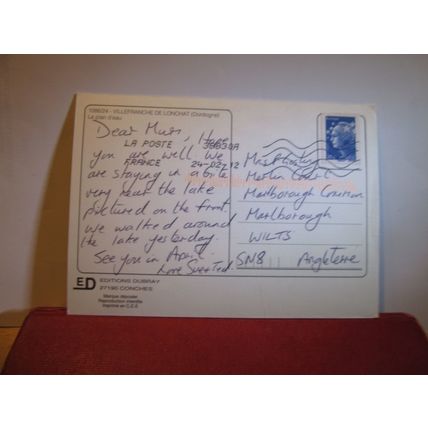 1086/24 - VILLEFRANCHE DE LONCHAT (Dordogne)
Le plan d'eau
Dear Mum, Hope
you are well. We
are staying in a gite
very near the lake
pictured on the front.
We walked around
the lake yesterday.
See you in April.
Love Sue + Ted.
LA POSTE 38630A
FRANCE 24-02-12
Merlin Court
Marlborough Common
Marlborough
WILTS
SN8 Angleterre
ED EDITIONS DUBRAY
27190 CONCHES
Marque déposée
Reproduction interdite
Imprimé en C.E.E.